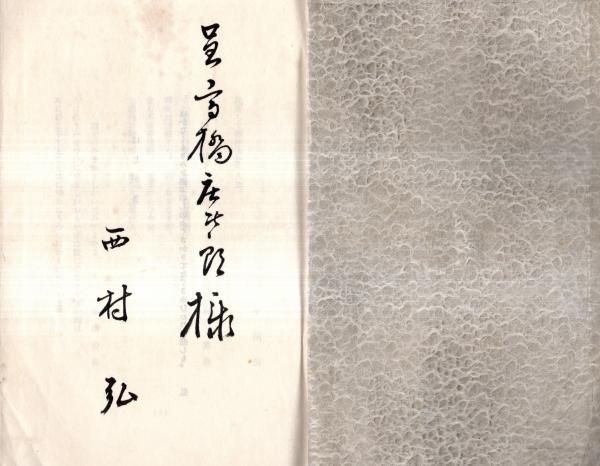 呈高橋庄太郎様
西村 弘